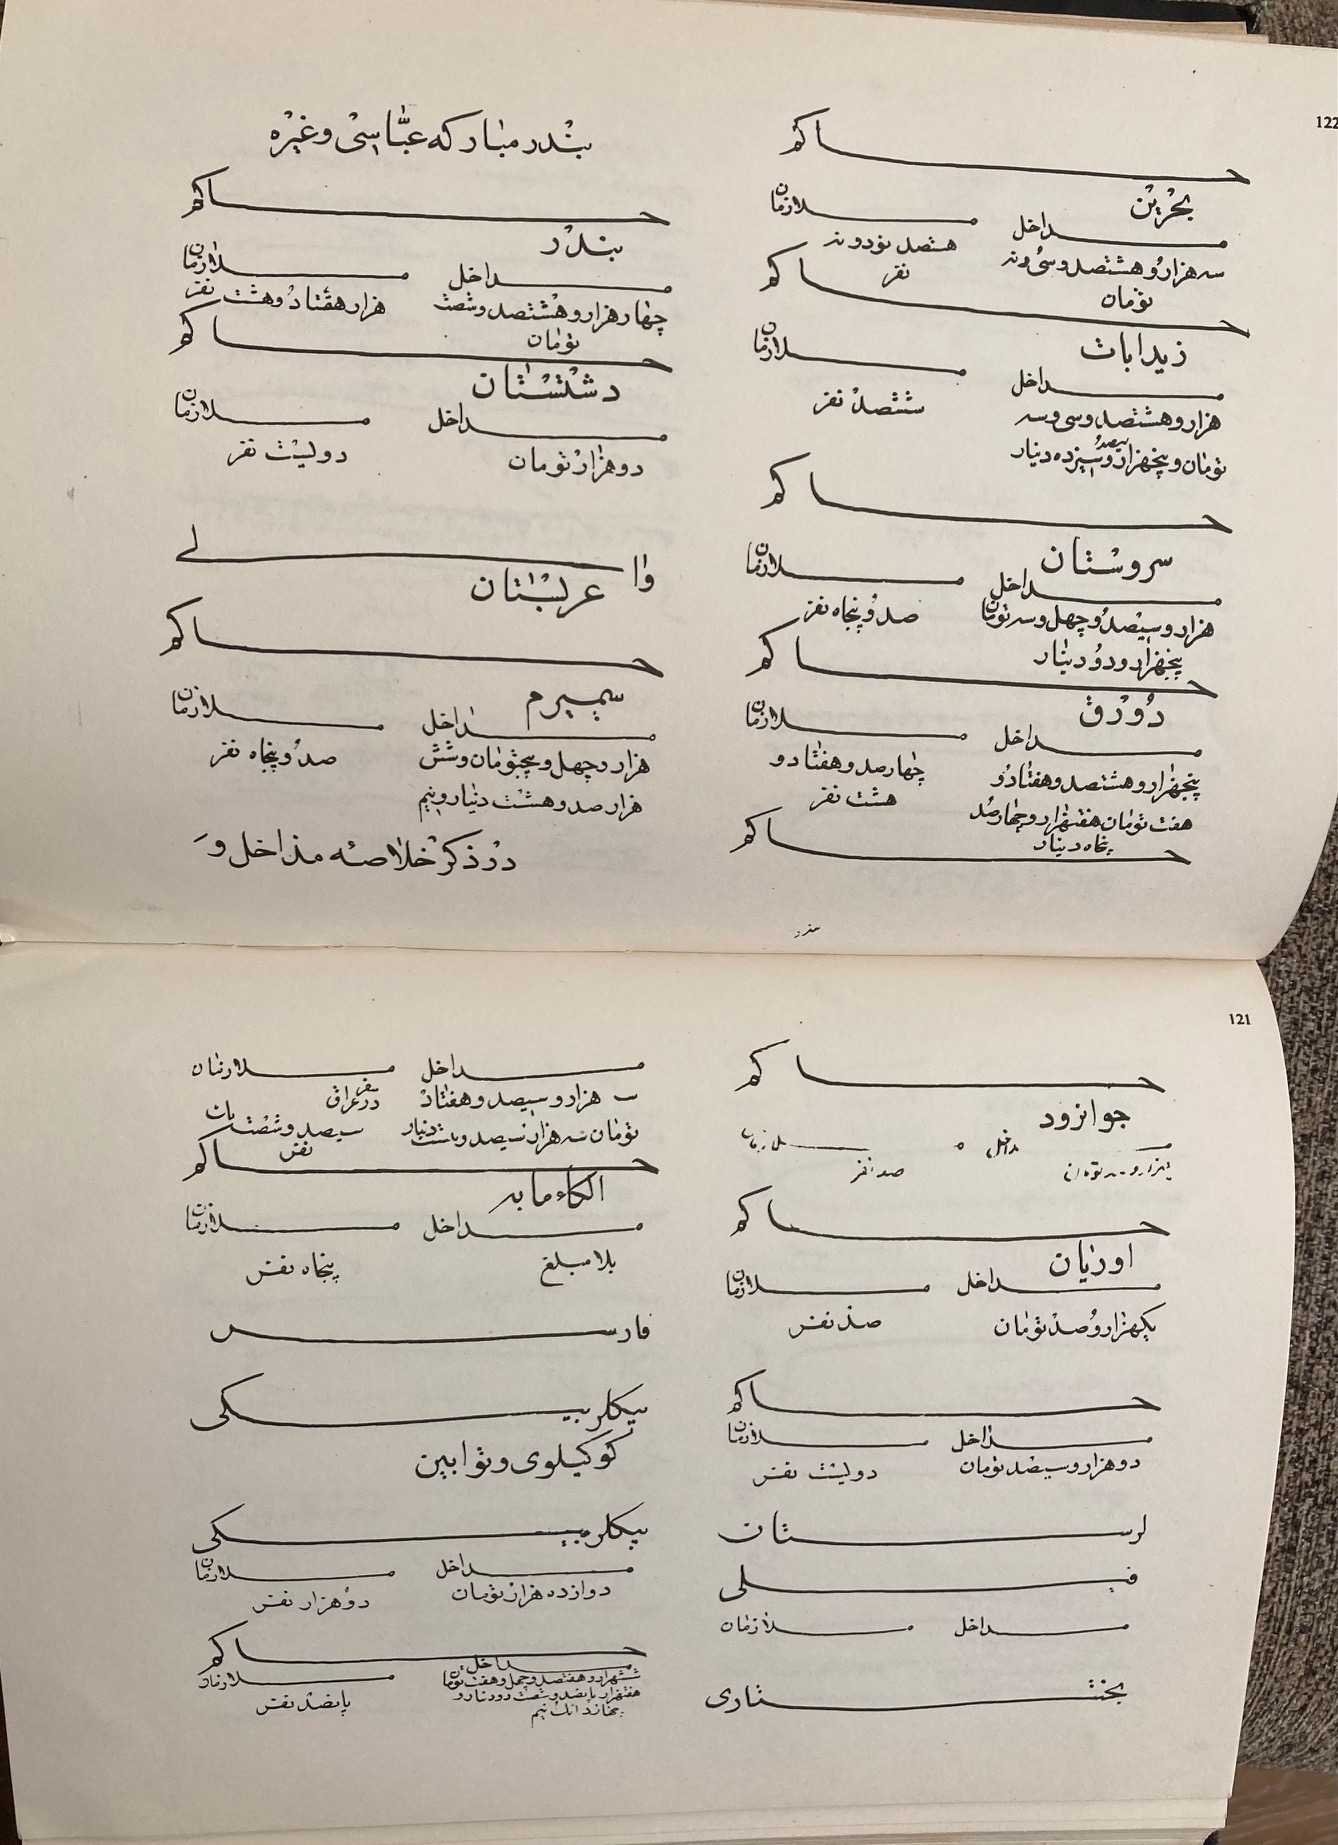 122
حاکم
بحرین
مداخل
ملازمان
سه هزار و هشتصد و سی و نه
تومان
هشتصد نود و نه
نفر
حاکم
زیدابات
مداخل
ملازمان
هزار و هشتصد و سی و سه
تومان و پنجهزار و سیصد و سیزده دینار
ششصد نفر
حاکم
سروستان
مداخل
ملازمان
هزار و سیصد و چهل و سه تومان
پنجهزار و دو دینار
صد و پنجاه نفر
حاکم
دورق
مداخل
ملازمان
پنجهزار و هشتصد و هفتاد و
هفت تومان هفتهزار و چهار صد
پنجاه دینار
چهار صد و هفتاد و
هشت نفر
حاکم
بندر مبارکه عباسی و غیره
حاکم
بندر
مداخل
ملازمان
چهار هزار و هشتصد و شصت
تومان
هزار هفتاد و هشت نفر
حاکم
دشتستان
مداخل
ملازمان
دو هزار تومان
دولیست نفر
والی
عربستان
حاکم
سمیرم
مداخل
ملازمان
هزار و چهل و پنجتومان و شش
هزار صد و هشت دینار و نیم
صد و پنجاه نفر
در ذکر خلاصه مداخل و
121
حاکم
جوانرود
مداخل
ملازمان
صد نفر
حاکم
اوریان
مداخل
ملازمان
یکهزار و صد تومان
صد نفر
حاکم
مداخل
ملازمان
دو هزار و سیصد تومان
دولیست نفر
لرستان
فیلی
مداخل
ملازمان
بختیاری
مداخل
ملازمان
هزار و سیصد و هفتاد
تومان سه هزار سیصد و هشت دینار
سفر
در عراق
سیصد و شصت
نفر
حاکم
الکاء مابه
مداخل
ملازمان
بلا مبلغ
پنجاه نفر
فارس
بیکلربیکی
کوکیلوی و توابین
بیکلربیکی
مداخل
ملازمان
دوازده هزار تومان
دو هزار نفر
حاکم
مداخل
ملازمان
ششهزار و هفتصد و چهل و هفت تومان
هفتهزار پانصد و شصت دو دینار و
پانصد نفر